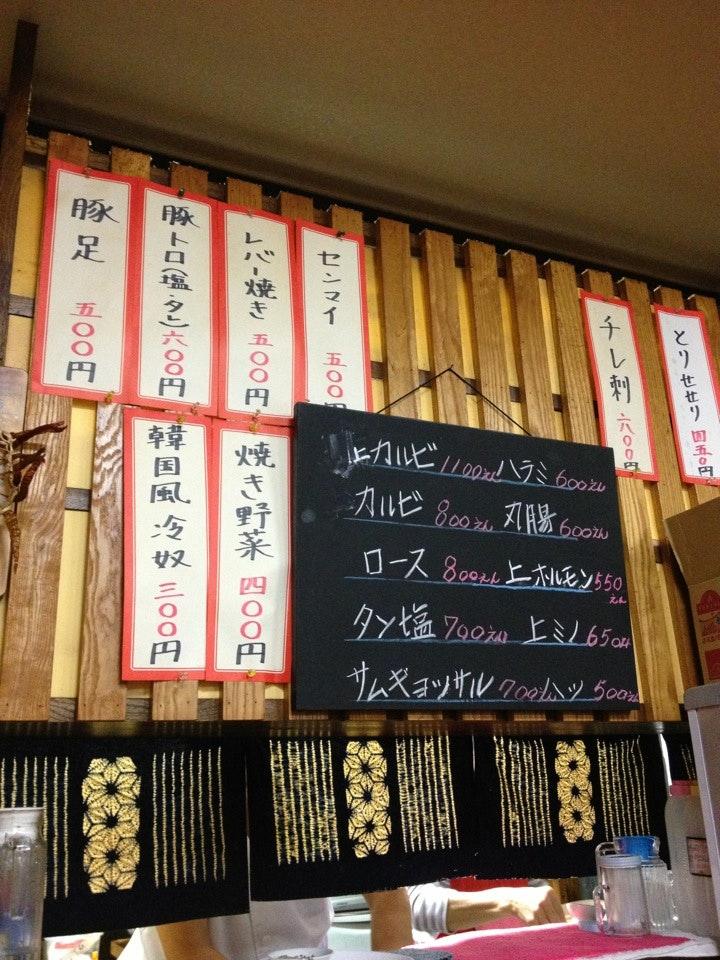 豚足 五〇〇円
豚トロ(塩・タレ) 六〇〇円
レバー焼き 五〇〇円
センマイ 五〇〇円
韓国風冷奴 三〇〇円
焼き野菜 四〇〇円
上カルビ 1100えん ハラミ 600えん
カルビ 800えん 丸腸 600えん
ロース 800えん 上ホルモン 550えん
タン塩 700えん 上ミノ 650えん
サムギョッサル 700えん ハツ 500えん
チレ刺 六〇〇円
とりせせり 四五〇円